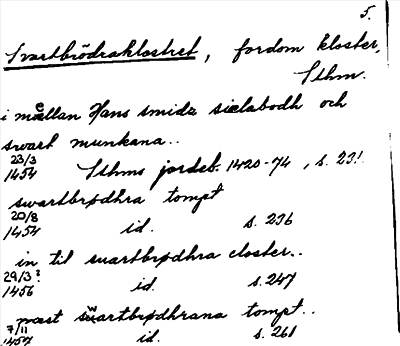 5.
Svartbrödraklostret, fordom kloster,
Sthm.
i mællan Hans smidz sielabodh och
swart munkana..
23/3
1454 Sthms jordeb. 1420-74, s. 231.
swartbrødhra tompt
20/8
1454 id. s. 236
in til suartbrødhra closter..
29/3?
1456 id. s. 247
mæst swartbrødhrana tompt..
7/11
1457 id. s. 261